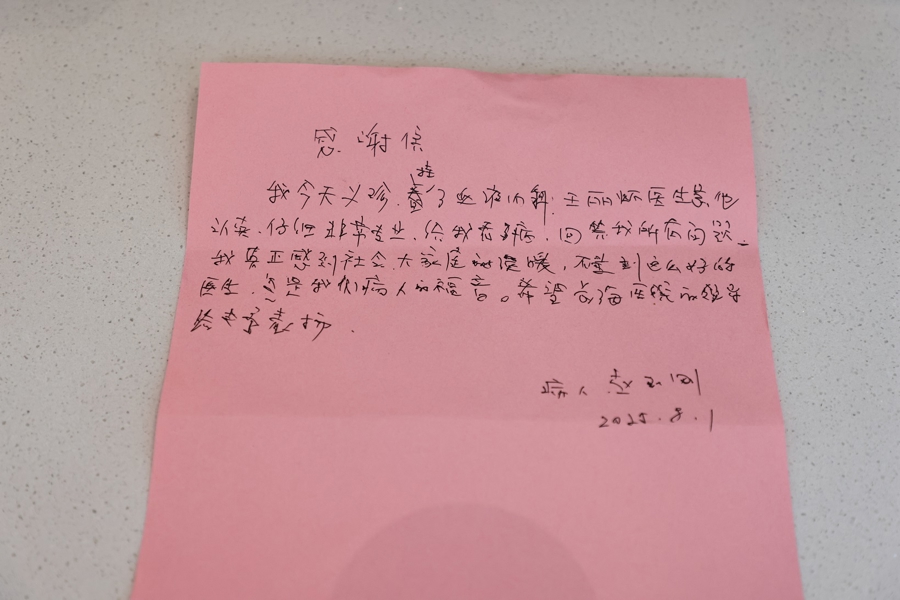 感谢信
挂
我今天义诊, 了血液内科, 王丽娜医生, 她
认真、仔细非常专业, 给我看了病, 回答我所有问题。
我真正感到社会大家庭的温暖, 碰到这么好的
医生, 是我们病人的福音。希望长海医院的领导
给 予表扬.
病人
2025.8.1